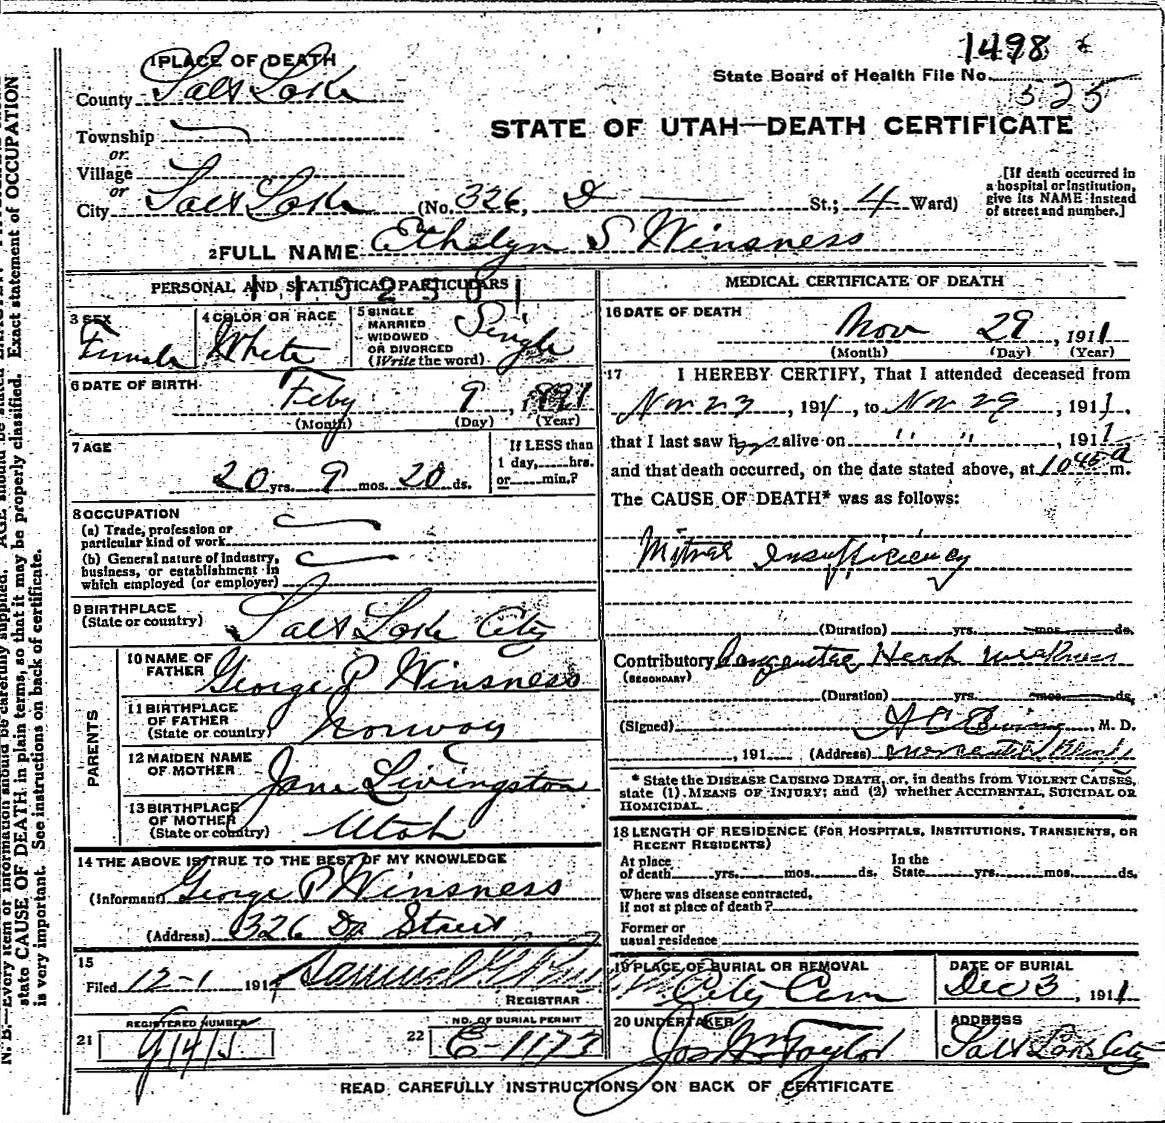 1498
State Board of Health File No.
525
1 PLACE OF DEATH
County Salt Lake
STATE OF UTAH—DEATH CERTIFICATE
Township
or
Village
or
City Salt Lake (No. 326, D St.; 4 Ward)
[If death occurred in
a hospital or institution,
give its NAME instead
of street and number.]
2 FULL NAME Ethelyn S Winsness
PERSONAL AND STATISTICAL PARTICULARS
3 SEX
Female
4 COLOR OR RACE
White
5 SINGLE
MARRIED
WIDOWED
OR DIVORCED
(Write the word)
Single
6 DATE OF BIRTH
Feby 9, 1891
(Month) (Day) (Year)
7 AGE
20 yrs. 9 mos. 20 ds.
If LESS than
1 day,......hrs.
or......min.?
8 OCCUPATION
(a) Trade, profession or
particular kind of work
(b) General nature of industry,
business, or establishment in
which employed (or employer)
9 BIRTHPLACE
(State or country)
Salt Lake City
PARENTS
10 NAME OF
FATHER
George P Winsness
11 BIRTHPLACE
OF FATHER
(State or country)
Norway
12 MAIDEN NAME
OF MOTHER
Jane Livingston
13 BIRTHPLACE
OF MOTHER
(State or country)
Utah
14 THE ABOVE IS TRUE TO THE BEST OF MY KNOWLEDGE
(Informant) George P Winsness
(Address) 326 D Street
15
Filed 12-1 191
REGISTRAR
REGISTERED NUMBER
21
22
NO. OF BURIAL PERMIT
E-1173
MEDICAL CERTIFICATE OF DEATH
16 DATE OF DEATH
Nov 29, 1911
(Month) (Day) (Year)
17 I HEREBY CERTIFY, That I attended deceased from
Nov 23, 1911, to Nov 29, 1911,
that I last saw her alive on " ", 1911
and that death occurred, on the date stated above, at 10 45 a m.
The CAUSE OF DEATH* was as follows:
Mitral Insufficiency
(Duration) yrs. mos. ds.
Contributory Congenital Heart weakness
(SECONDARY)
(Duration) yrs. mos. ds.
(Signed) M. D.
, 191 (Address)
* State the DISEASE CAUSING DEATH, or, in deaths from VIOLENT CAUSES,
state (1) MEANS OF INJURY; and (2) whether ACCIDENTAL, SUICIDAL OR
HOMICIDAL.
18 LENGTH OF RESIDENCE (FOR HOSPITALS, INSTITUTIONS, TRANSIENTS, OR
RECENT RESIDENTS)
At place
of death yrs. mos. ds.
In the
State yrs. mos. ds.
Where was disease contracted,
if not at place of death?
Former or
usual residence
19 PLACE OF BURIAL OR REMOVAL
City Cem
DATE OF BURIAL
Dec 3, 1911
20 UNDERTAKER
Jos Wm Taylor
ADDRESS
Salt Lake City
READ CAREFULLY INSTRUCTIONS ON BACK OF CERTIFICATE
N. B.—Every item of information should be carefully supplied. AGE should be stated EXACTLY.
state CAUSE OF DEATH in plain terms, so that it may be properly classified. Exact statement of OCCUPATION
is very important. See instructions on back of certificate.